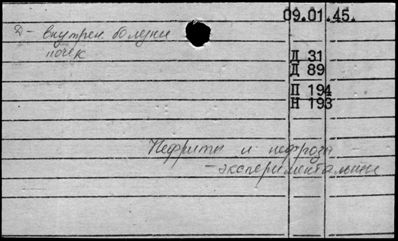 09.01.45.
Д - внутрен. болезни
почек
Д 31
Д 89
П 194
Н 193
Нефриты и нефрозы
- экспериментальные